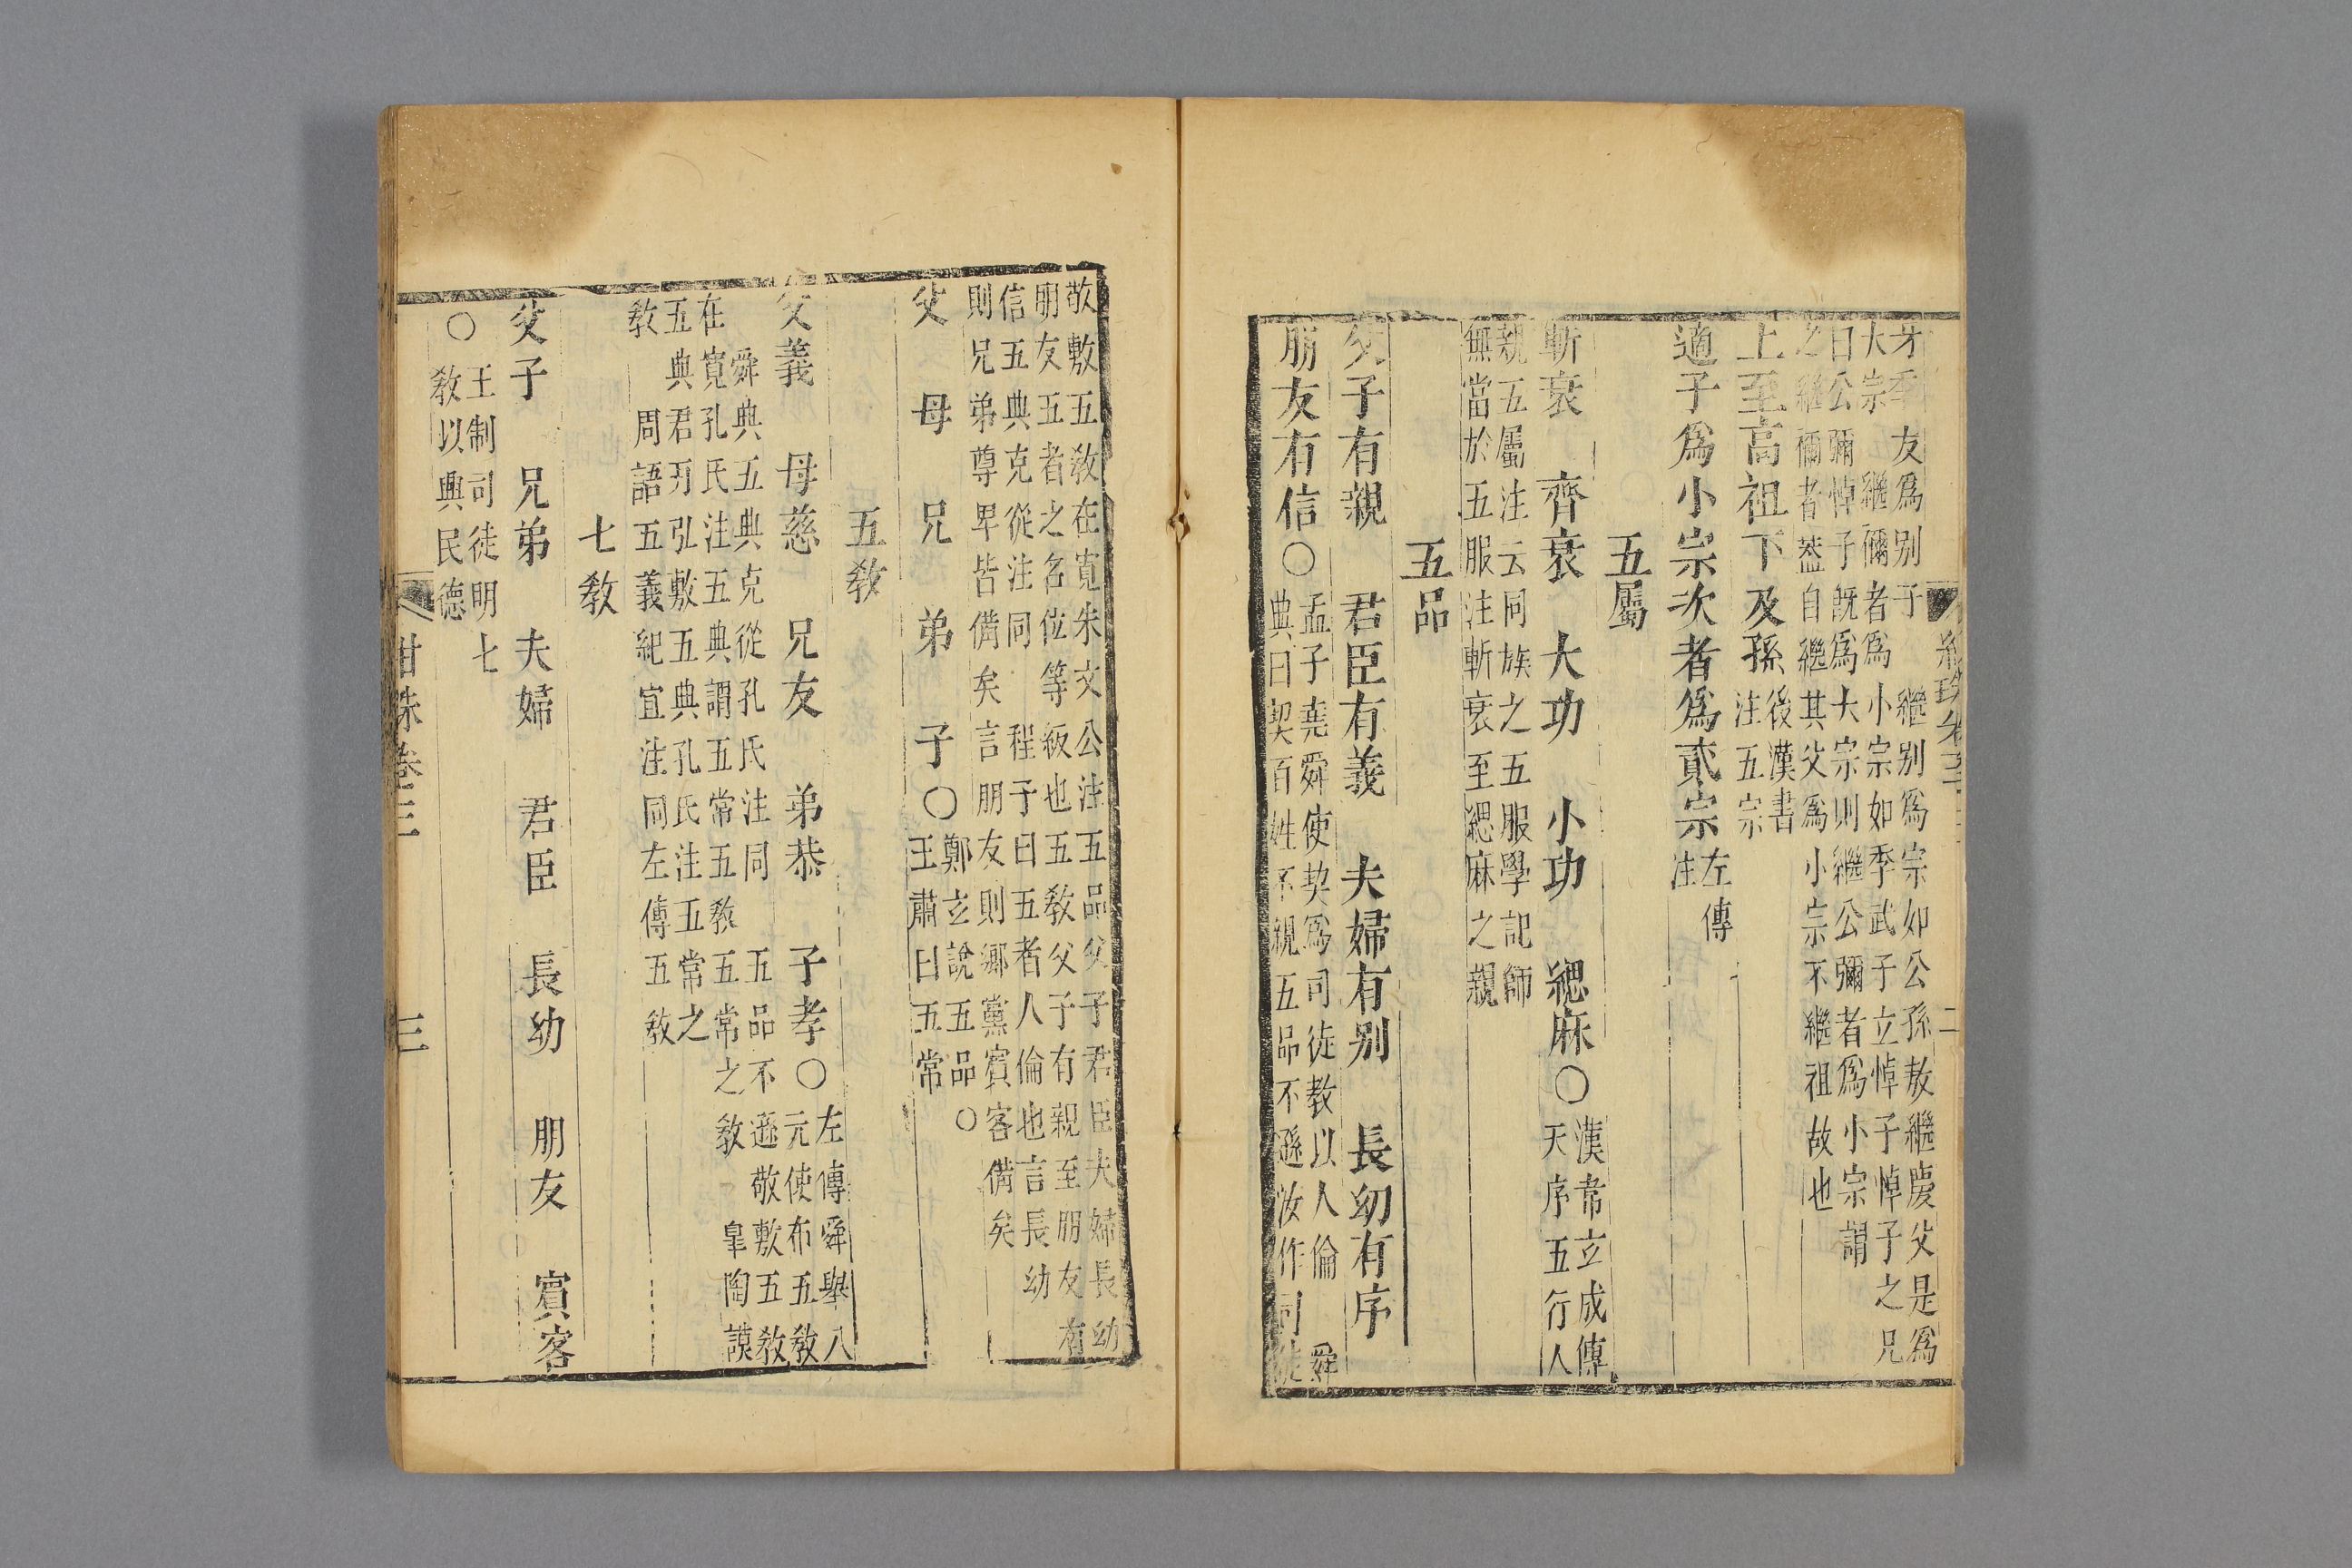 牙季友爲别子繼别爲宗如公孫敖繼慶父是爲
大宗繼禰者爲小宗如季武子立悼子悼子之兄
曰公彌悼子旣爲大宗則繼公彌者爲小宗謂
之繼禰者葢自繼其父爲小宗不繼祖故也
上至高祖下及孫後漢書
注五宗
適子爲小宗次者爲貳宗左傳
注
五屬
斬衰 齊衰 大功 小功 緦麻○漢韋立成傳
天序五行人
親五屬注云同族之五服學記師
無當於五服注斬衰至緦麻之親
五品
父子有親 君臣有義 夫婦有别 長幼有序
朋友有信○孟子堯舜使契爲司徒教以人倫 舜
典曰契百姓不親五品不遜汝作司徒
敬敷五敎在寬朱文公注五品父子君臣夫婦長幼
朋友五者之名位等級也五敎父子有親至朋友有
信五典克從注同 程子曰五者人倫也言長幼
則兄弟尊卑皆備矣言朋友則鄉黨賓客備矣
父 母 兄 弟 子○鄭玄說五品○
王肅曰五常
五敎
父義 母慈 兄友 弟恭 子孝○左傳舜舉八
元使布五敎
舜典五典克從孔氏注同 五品不遜敬敷五敎
在寬孔氏注五典謂五常五敎五常之敎 皐陶謨
五典君丏弘敷五典孔氏注五常之
敎 周語五義紀宜注同左傳五敎
七敎
父子 兄弟 夫婦 君臣 長幼 朋友 賓客
○王制司徒明七
敎以興民德
紺珠卷三 三